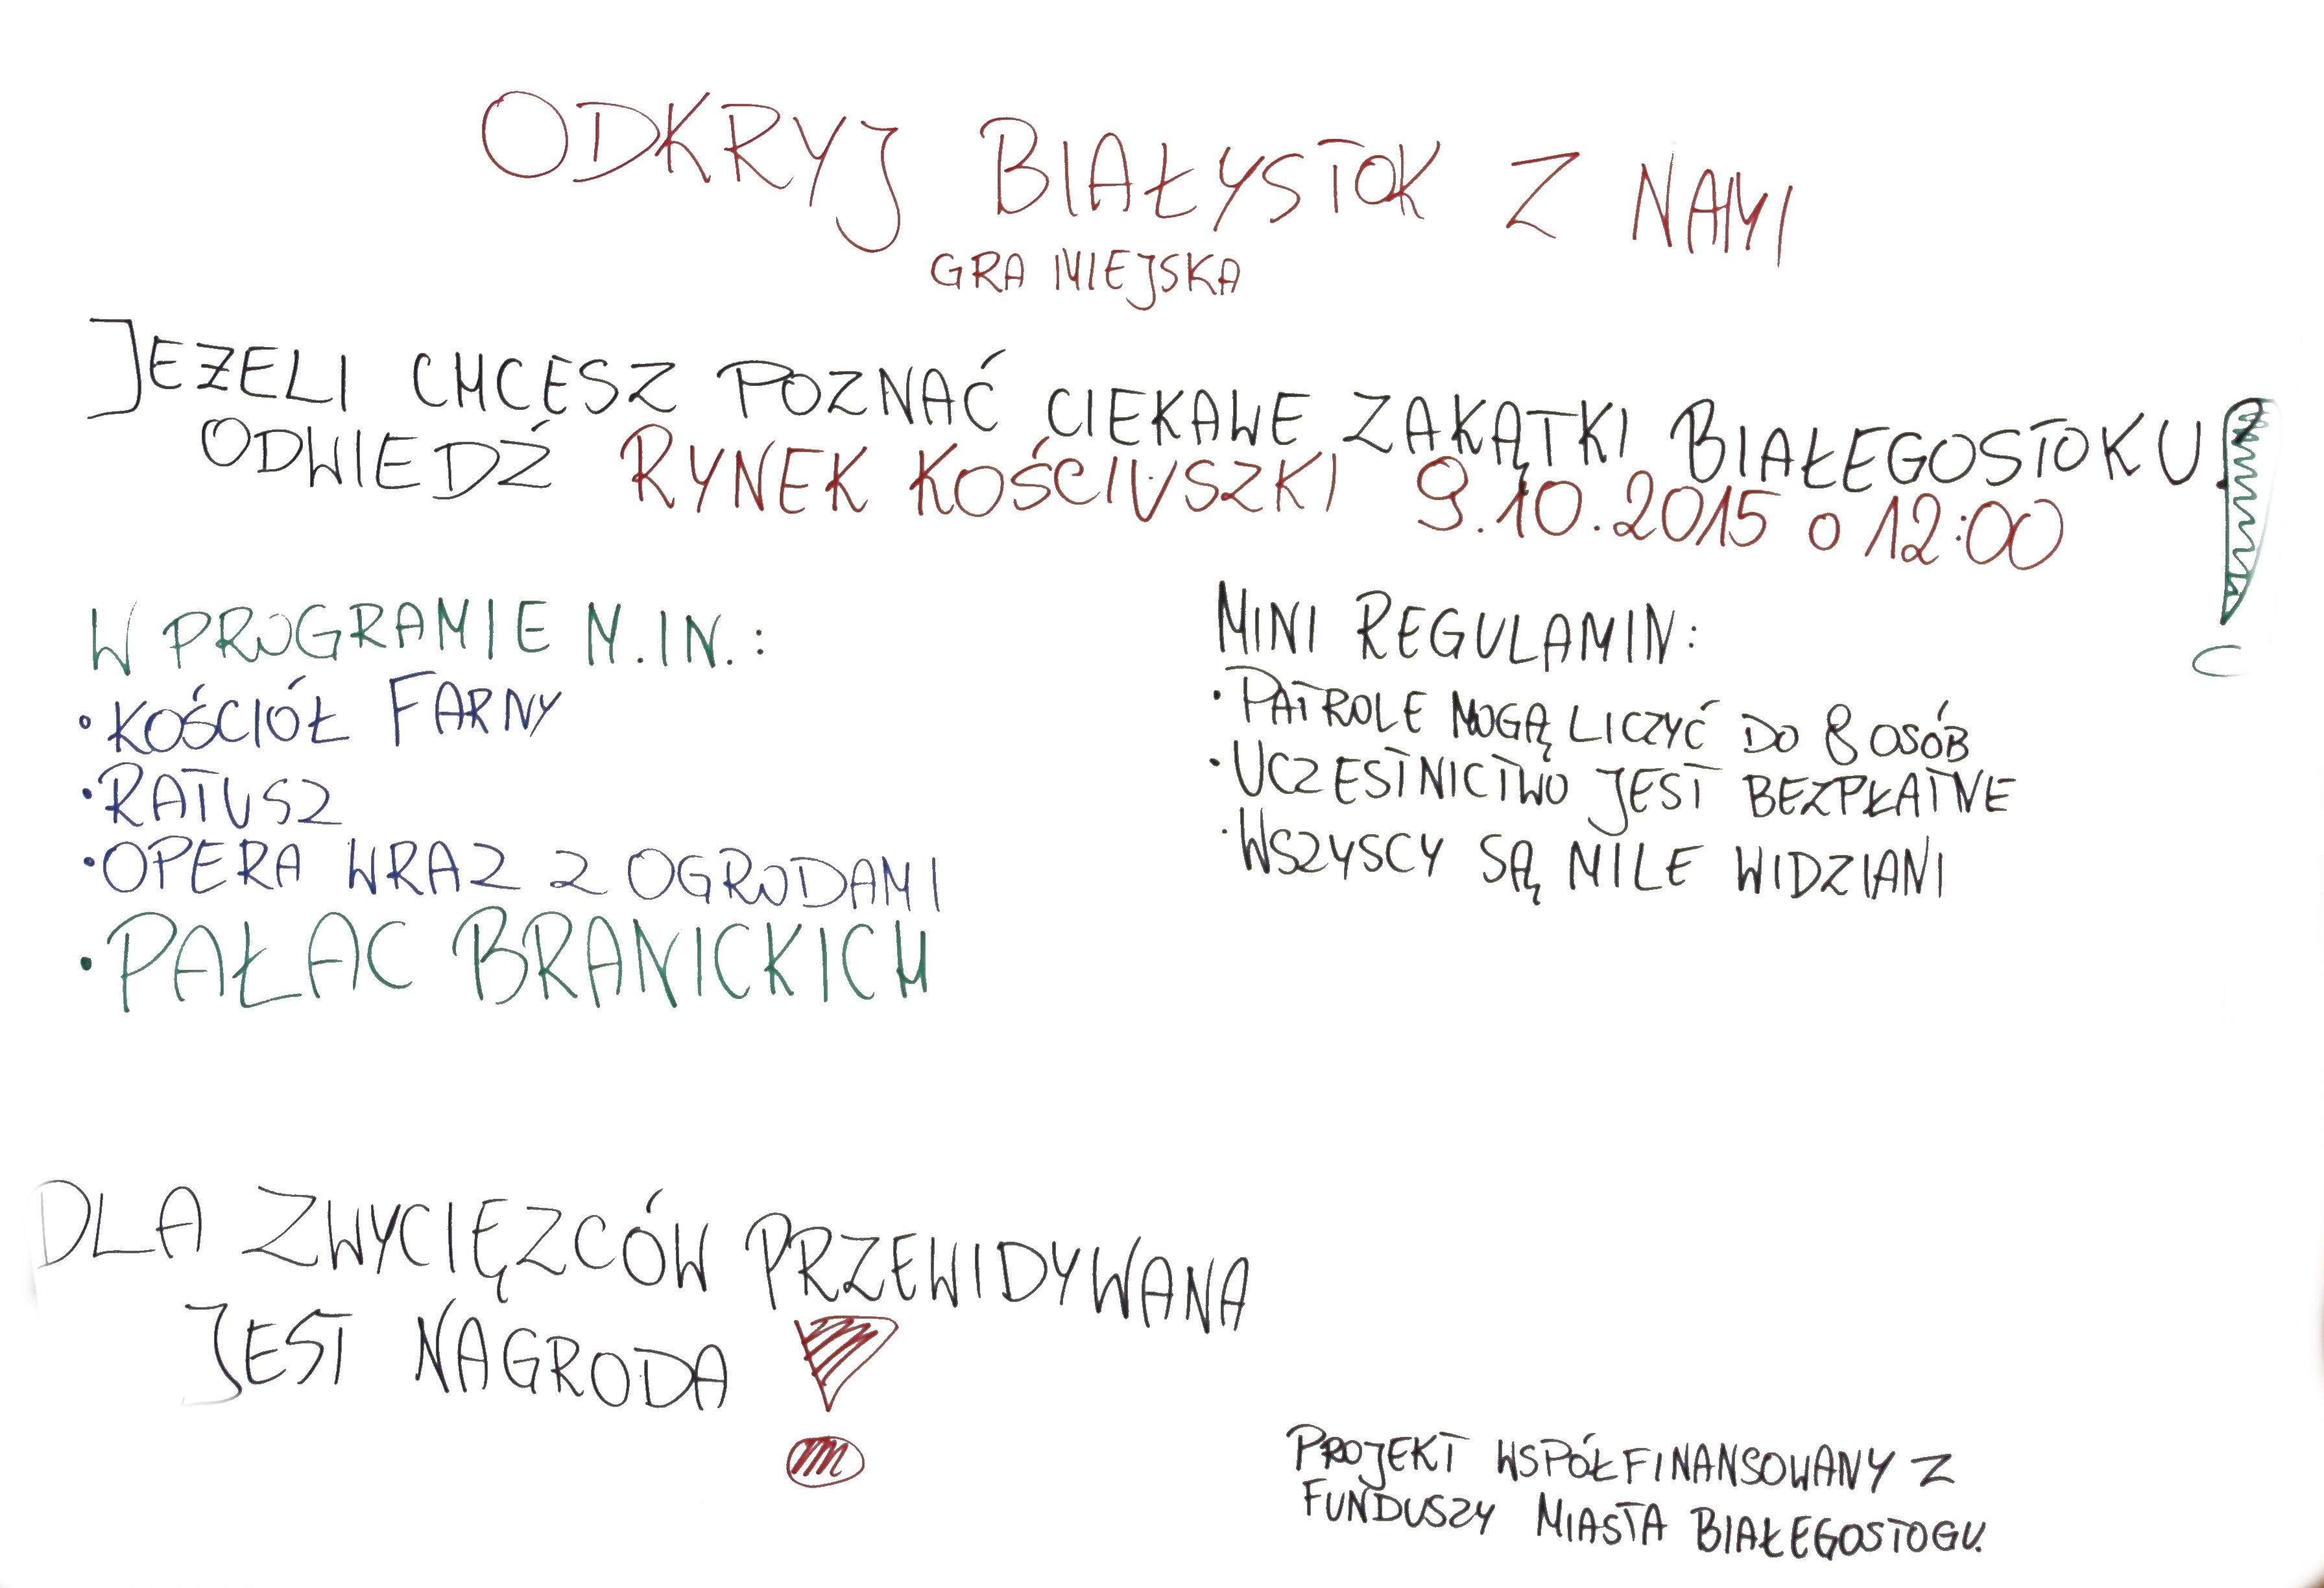 ODKRYJ BIAŁYSTOK Z NAMI
GRA MIEJSKA
JEŻELI CHCESZ POZNAĆ CIEKAWE ZAKĄTKI BIAŁEGOSTOKU,
ODWIEDŹ RYNEK KOŚCIUSZKI 9.10.2015 O 12:00
W PROGRAMIE M.IN.:
• KOŚCIÓŁ FARNY
• RATUSZ
• OPERA WRAZ Z OGRODAMI
• PAŁAC BRANICKICH
MINI REGULAMIN:
• PATROLE MOGĄ LICZYĆ DO 8 OSÓB
• UCZESTNICTWO JEST BEZPŁATNE
• WSZYSCY SĄ MILE WIDZIANI
DLA ZWYCIĘZCÓW PRZEWIDYWANA
JEST NAGRODA !
PROJEKT WSPÓŁFINANSOWANY Z
FUNDUSZY MIASTA BIAŁEGOSTOGU.